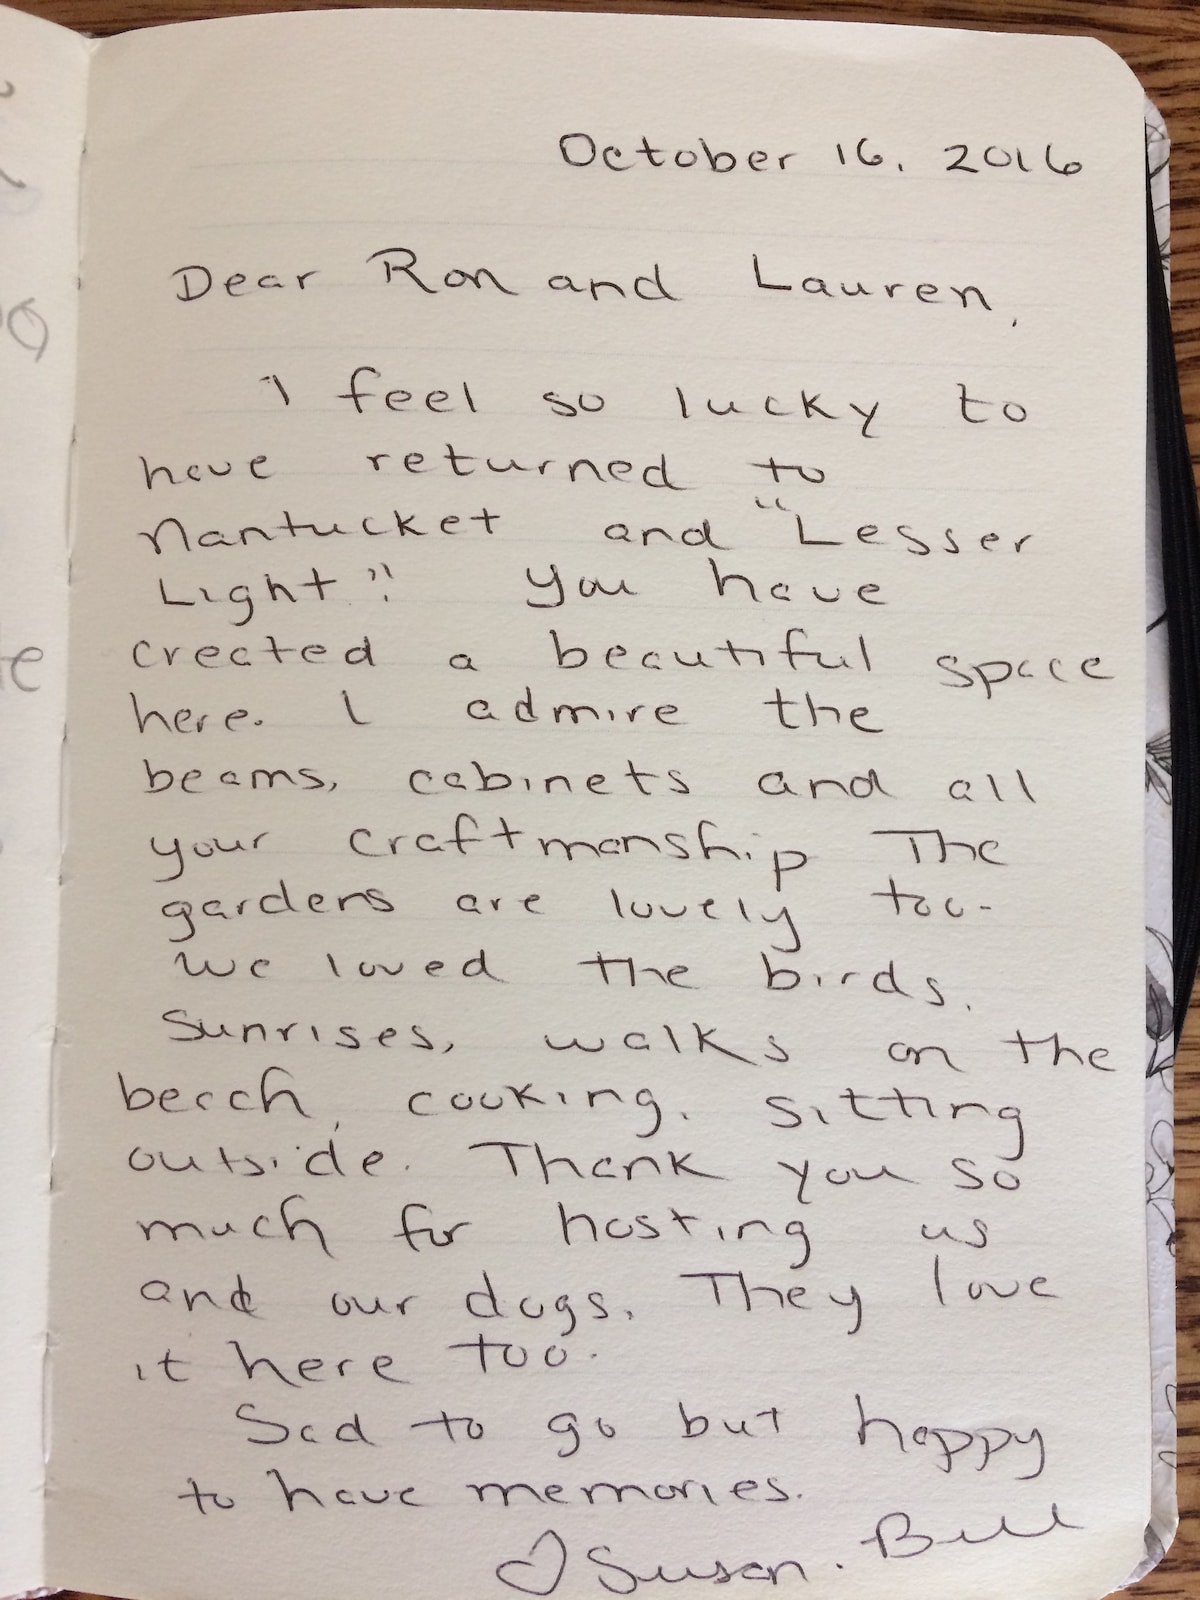 October 16, 2016
Dear Ron and Lauren,
I feel so lucky to
have returned to
Nantucket and "Lesser
Light". You have
created a beautiful space
here. I admire the
beams, cabinets and all
your craftmanship The
gardens are lovely too.
We loved the birds,
sunrises, walks on the
beach, cooking, sitting
outside. Thank you so
much for hosting us
and our dogs. They love
it here too.
Sad to go but happy
to have memories.
♡ Susan. Bill